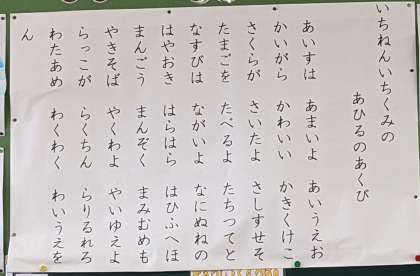 いちねんいちくみの
あひるのあくび
あいすは　あまいよ　あいうえお
かいがら　かわいい　かきくけこ
さくらが　さいたよ　さしすせそ
たまごを　たべるよ　たちつてと
なすびは　ながいよ　なにぬねの
はやおき　はらはら　はひふへほ
まんごう　まんぞく　まみむめも
やきそば　やくわよ　やいゆえよ
らっこが　らくちん　らりるれろ
わたあめ　わくわく　わいうえを
ん